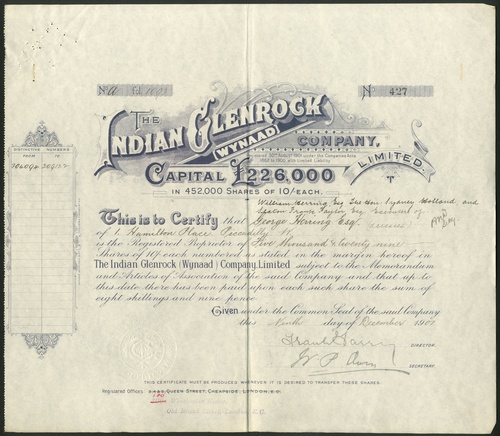 No A
No 427
THE
INDIAN GLENROCK
WYNAAD
COMPANY,
LIMITED.
CAPITAL £226,000
IN 452,000 SHARES OF 10/- EACH.
DISTINCTIVE NUMBERS
FROM TO
William Herring Esq The Hon. Sydney Holland and
Francis Taylor Esq Executors of
This is to Certify that George Herring Esqr.
of 1. Hamilton Place Piccadilly W.
is the Registered Proprietor of Five thousand & twenty nine
Shares of 10/- each numbered as stated in the margin hereof in
The Indian Glenrock (Wynaad) Company, Limited subject to the Memorandum
and Articles of Association of the said Company and that up to
this date there has been paid upon each such share the sum of
eight shillings and nine pence
Given under the Common Seal of the said Company
this Ninth day of December 1902
DIRECTOR.
SECRETARY.
THIS CERTIFICATE MUST BE PRODUCED WHENEVER IT IS DESIRED TO TRANSFER THESE SHARES.
Registered Offices QUEEN STREET, CHEAPSIDE, LONDON, E.C.